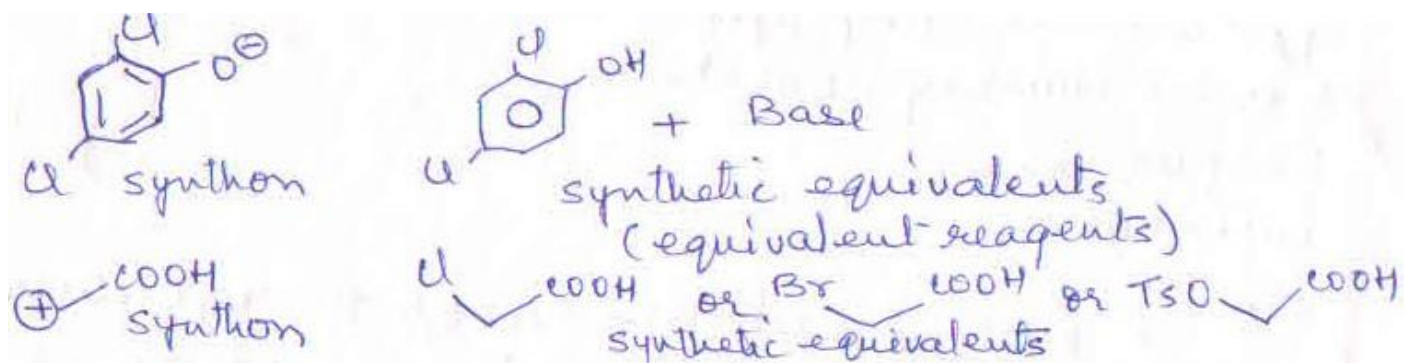 Cl
O⊖
Cl
OH
+ Base
Cl synthon
Cl synthetic equivalents
(equivalent reagents)
⊕ COOH
synthon
Cl COOH or Br COOH or TsO COOH
synthetic equivalents